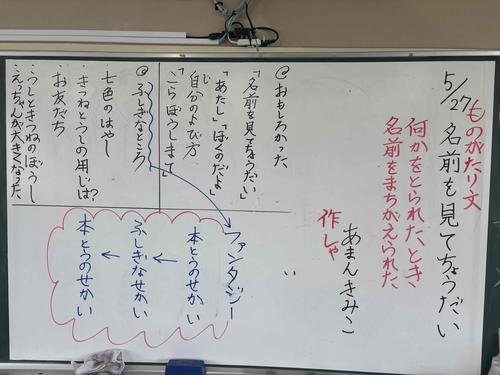 ものがたり文
5/27 名前を見てちょうだい
何かをとられた、とき
名前をまちがえられた
あまんきみこ
作しゃ
おもしろかった、
「名前を見てちょうだい」
「あたし」「ぼくのだよ」
自分のよび方
じ
「こらぼうしまてえ」
ふしぎなところ
七色のはやし
・きつねとうしの用じは?
お友だち
・うしときつねのぼうし
・えっちゃんが大きくなった
ファンタジー
本とうのせかい
←
ふしぎなせかい
←
本とうのせかい
い